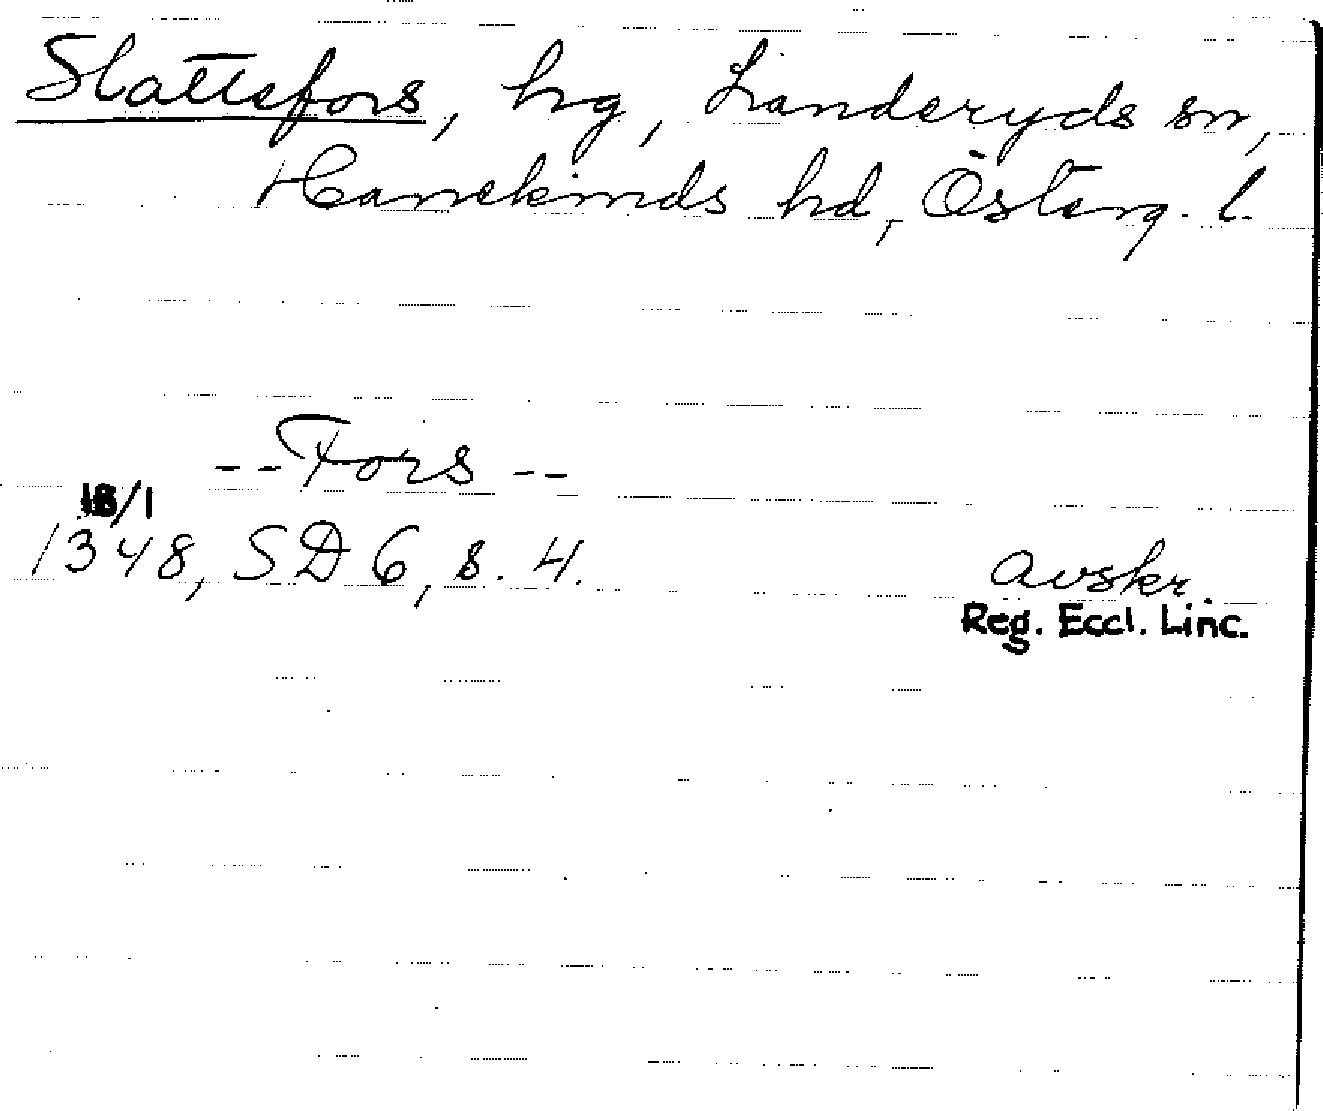 Slattefors, hg, Landeryds sn,
Hanekinds hd, Österg. l.
-- Fors --
18/1
1348, SD 6, s. 4.
avskr.
Reg. Eccl. Linc.